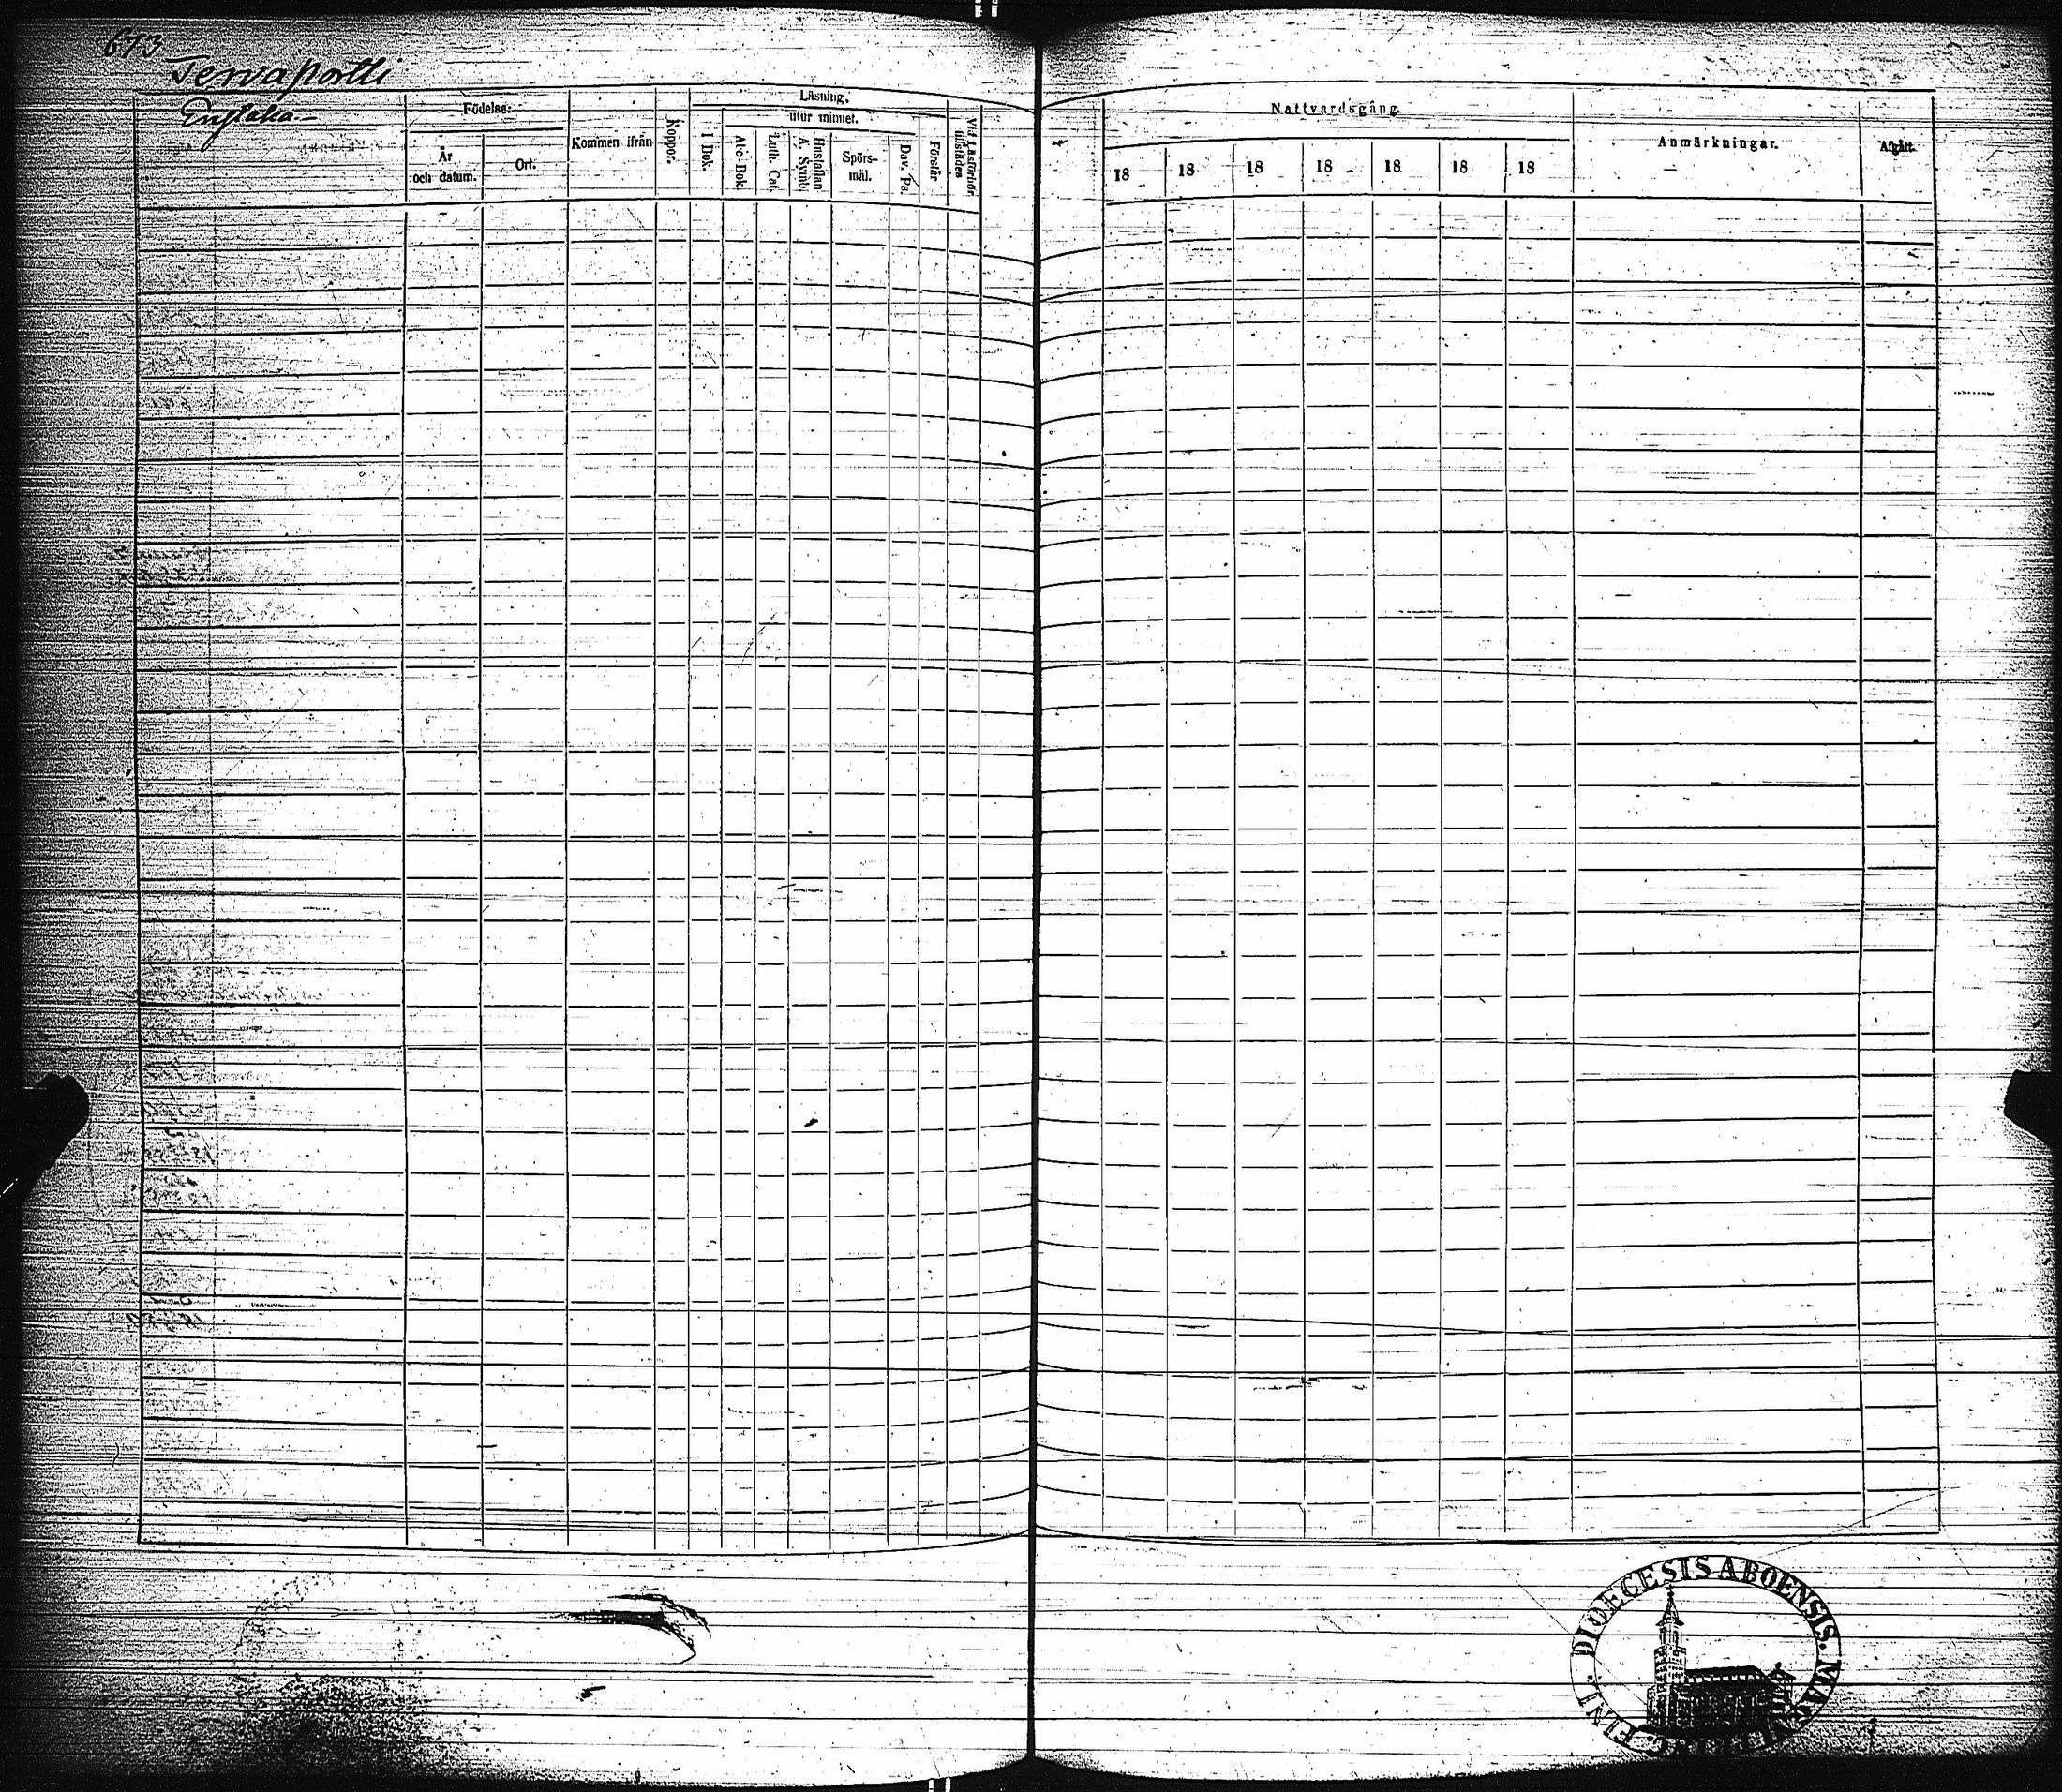 673
Tervaportti
Födelse:
År
och datum.
Ort.
Kommen ifrån
Koppor.
Läsning.
utur minnet.
I Bok.
Abc-Bok
Luth. Cat.
Hustaflan
A. Symb.
Spörs-
mål.
Dav. Ps.
Förstår
Vid Läsförhör
tillstädes
Nattvardsgång.
18
18
18
18
18
18
18
Anmärkningar.
Afgått.
DIOECESIS ABOENSIS.